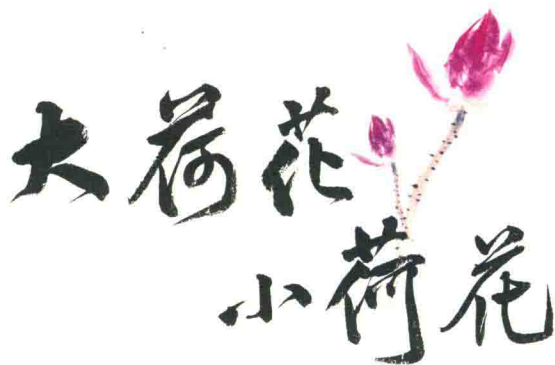 大荷花
小荷花